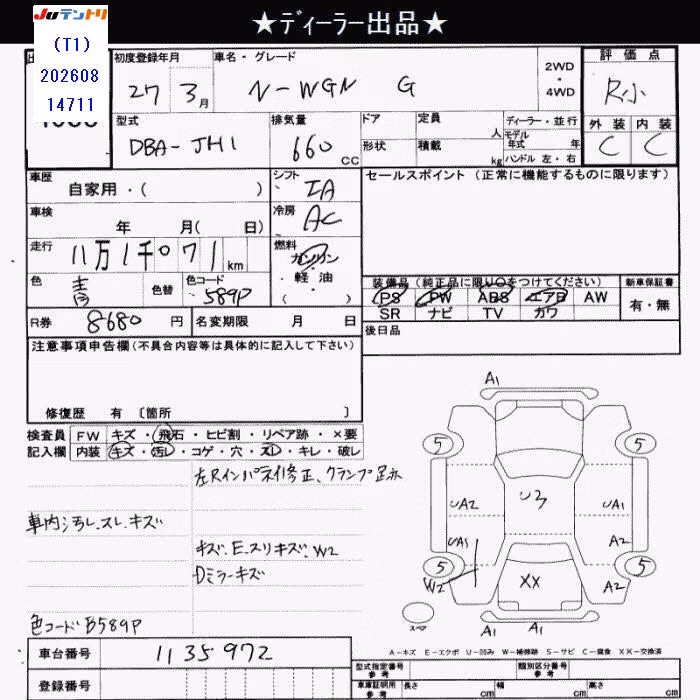 ★ディーラー出品★
JUテントリ
(T1)
202608
14711
初度登録年月 車名・グレード 2WD・4WD 評価点
27年 3月 N-WGN G R小
型式 排気量 ドア 定員 人 ディーラー・並行 外装 内装
DBA-JH1 660cc 形状 積載 kg モデル年式 年 ハンドル 左・右 C C
車歴 シフト セールスポイント(正常に機能するものに限ります)
自家用・( ) IA
車検 冷房
年 月( 日) AC
走行 燃料
11万1千071km ガソリン・軽油・( )
色 色替 色コード 装備品(純正品に限り○をつけてください) 新車保証書
青 589P PS PW ABS エアB AW 有・無
SR ナビ TV カワ
R券 8680円 名変期限 月 日 後日品
注意事項申告欄(不具合内容等は具体的に記入して下さい)
修復歴 有〔箇所 〕
検査員 FW キズ・飛石・ヒビ割・リペア跡・×要
記入欄 内装 キズ・汚レ・コゲ・穴・スレ・キレ・破レ
左Rインパネ修正、クランプ跡
車内汚レ、スレ、キズ
キズ、E、スリキズ、W2
Dミラーキズ
色コードB589P
A1
5 5
UA2 U3 UA1
UA1 A2
5 5
W2 XX A2
スペア
A1 A1
A-キズ E-エクボ U-凹み W-補修跡 S-サビ C-腐食 XX-交換済
車台番号 1135972
登録番号
型式指定番号 参考 類別区分番号 参考
車庫証明用 参考 長さ cm 幅 cm 高さ cm